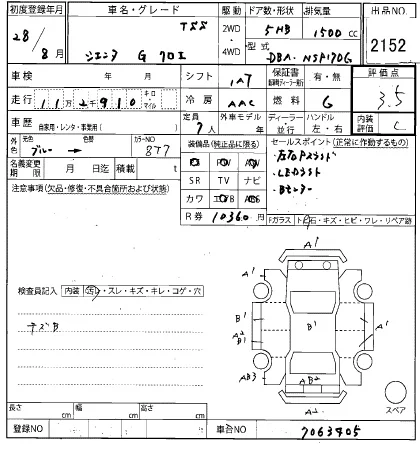 初度登録年月 車名・グレード 駆動 ドア数・形状 排気量 出品NO
28/8月 シエンタ G クロエ TSS 2WD・4WD 5HB 1500cc 2152
型式 DBA-NSP170G
車検 年 月 シフト IAT 保証書 有・無 評価点 3.5
走行 11万2千910 キロ・マイル 冷房 AAC 燃料 G
車歴 自家用・レンタ・事業用( ) 定員 7人 外車モデル 年 ディーラー・並行 ハンドル 左・右 内装評価 C
外色 元色 ブルー → カラーNO 8T7 装備品(純正品に限る) セールスポイント(正常に作動するもの)
名義変更期限 月 日迄 積載 t
・左右Pスライド
・LEDライト
・Bモニター
SR TV ナビ
カワ エアB ABS
R券 10360円
注意事項(欠品・修復・不具合箇所および状態)
Fガラス トビ石・キズ・ヒビ・ワレ・リペア跡
検査員記入 内装 汚・スレ・キズ・キレ・コゲ・穴
キズB
A1
A1
B1 B1
A2 B1 A1
AB3 AB2
A2
スペア
長さ cm 幅 cm 高さ cm
登録NO 車台NO 7063405